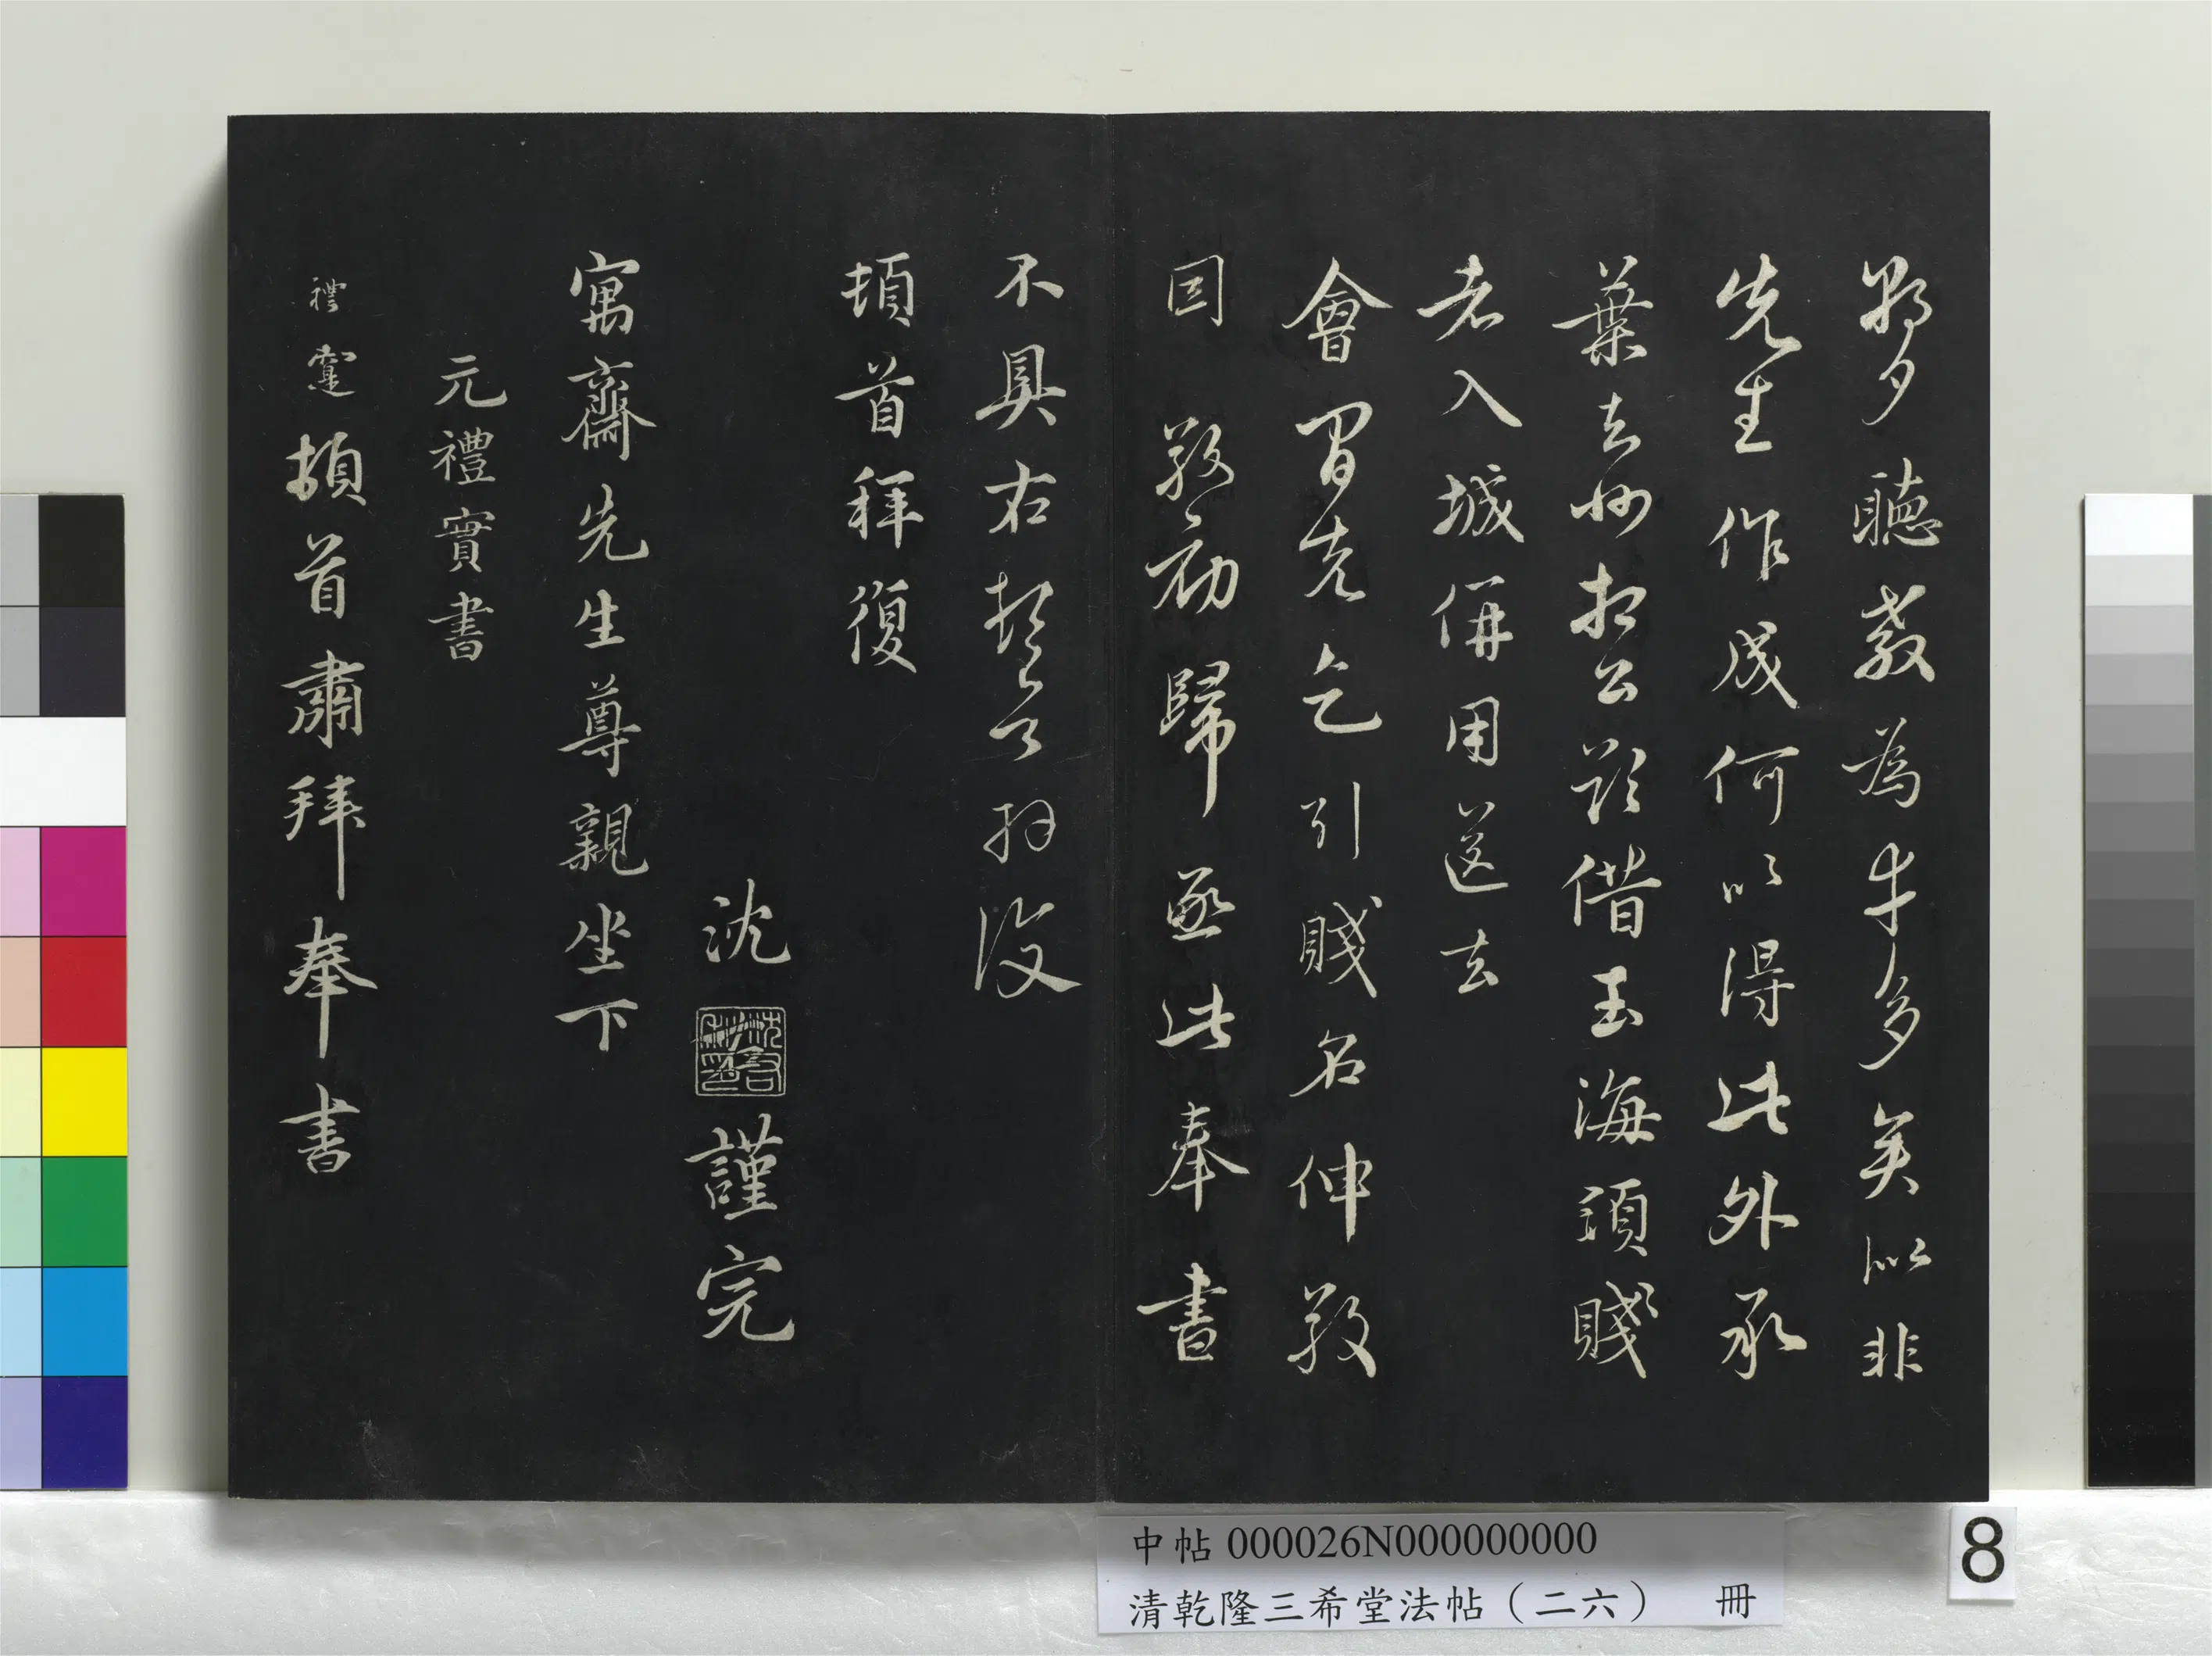 聽教為牛多矣以非
先生作成何以得此外承
葉去妙相公欲借玉海須賤
老入城併用送去
會間先乞引賤名伸敬
因敬初歸亟此奉書
不具右契公拜復
頓首拜復
沈謹完
寓齋先生尊親坐下
元禮實書
頓首肅拜奉書
中帖 000026N000000000
清乾隆三希堂法帖（二六） 冊
8